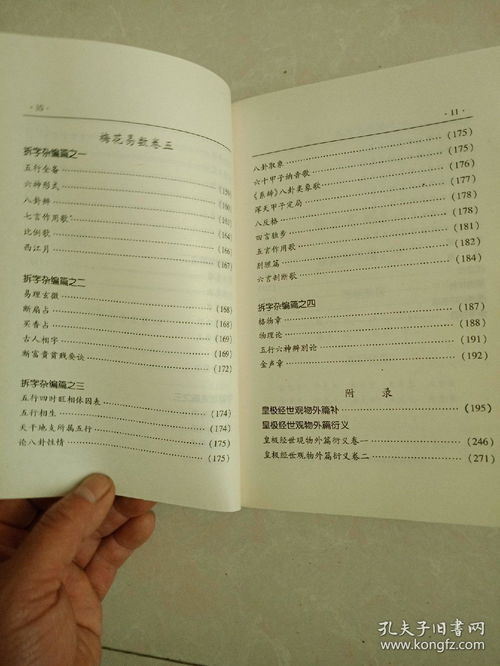 梅花易数卷三
拆字杂编篇之一
五行全备
六神形式 (159)
八卦辨 (161)
七言作用歌 (164)
比例歌 (166)
西江月 (167)
拆字杂编篇之二
易理玄微 (168)
断扇占 (168)
买香占 (168)
古人相字 (169)
断富贵贫贱要诀 (172)
拆字杂编篇之三
五行四时旺相休囚表 (174)
五行相生 (174)
天干地支所属五行 (175)
论八卦性情 (175)
· 11 ·
八卦取象 (175)
六十甲子纳音歌 (175)
《系辞》八卦类象歌 (176)
浑天甲子定局 (177)
八反格 (178)
四言独步 (178)
五言作用歌 (181)
别理篇 (182)
六言剖断歌 (184)
拆字杂编篇之四
格物章 (187)
物理论 (188)
五行六神辨别论 (191)
金声章 (192)
附录
皇极经世观物外篇补 (195)
皇极经世观物外篇衍义
皇极经世观物外篇衍义卷一 (246)
皇极经世观物外篇衍义卷二 (271)
孔夫子旧书网
www.kongfz.com